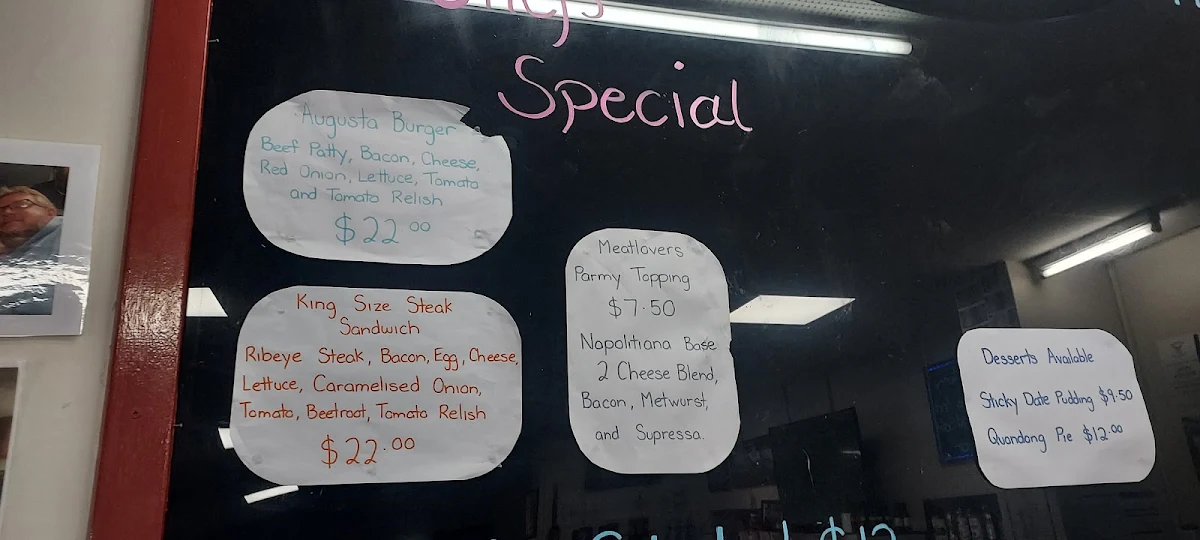 Chefs
Special
Augusta Burger
Beef Patty, Bacon, Cheese,
Red Onion, Lettuce, Tomato
and Tomato Relish
$22.00
King Size Steak
Sandwich
Ribeye Steak, Bacon, Egg, Cheese,
Lettuce, Caramelised Onion,
Tomato, Beetroot, Tomato Relish
$22.00
Meatlovers
Parmy Topping
$7.50
Napolitiana Base
2 Cheese Blend,
Bacon, Metwurst,
and Supressa.
Desserts Available
Sticky Date Pudding $9.50
Quandong Pie $12.00
$12